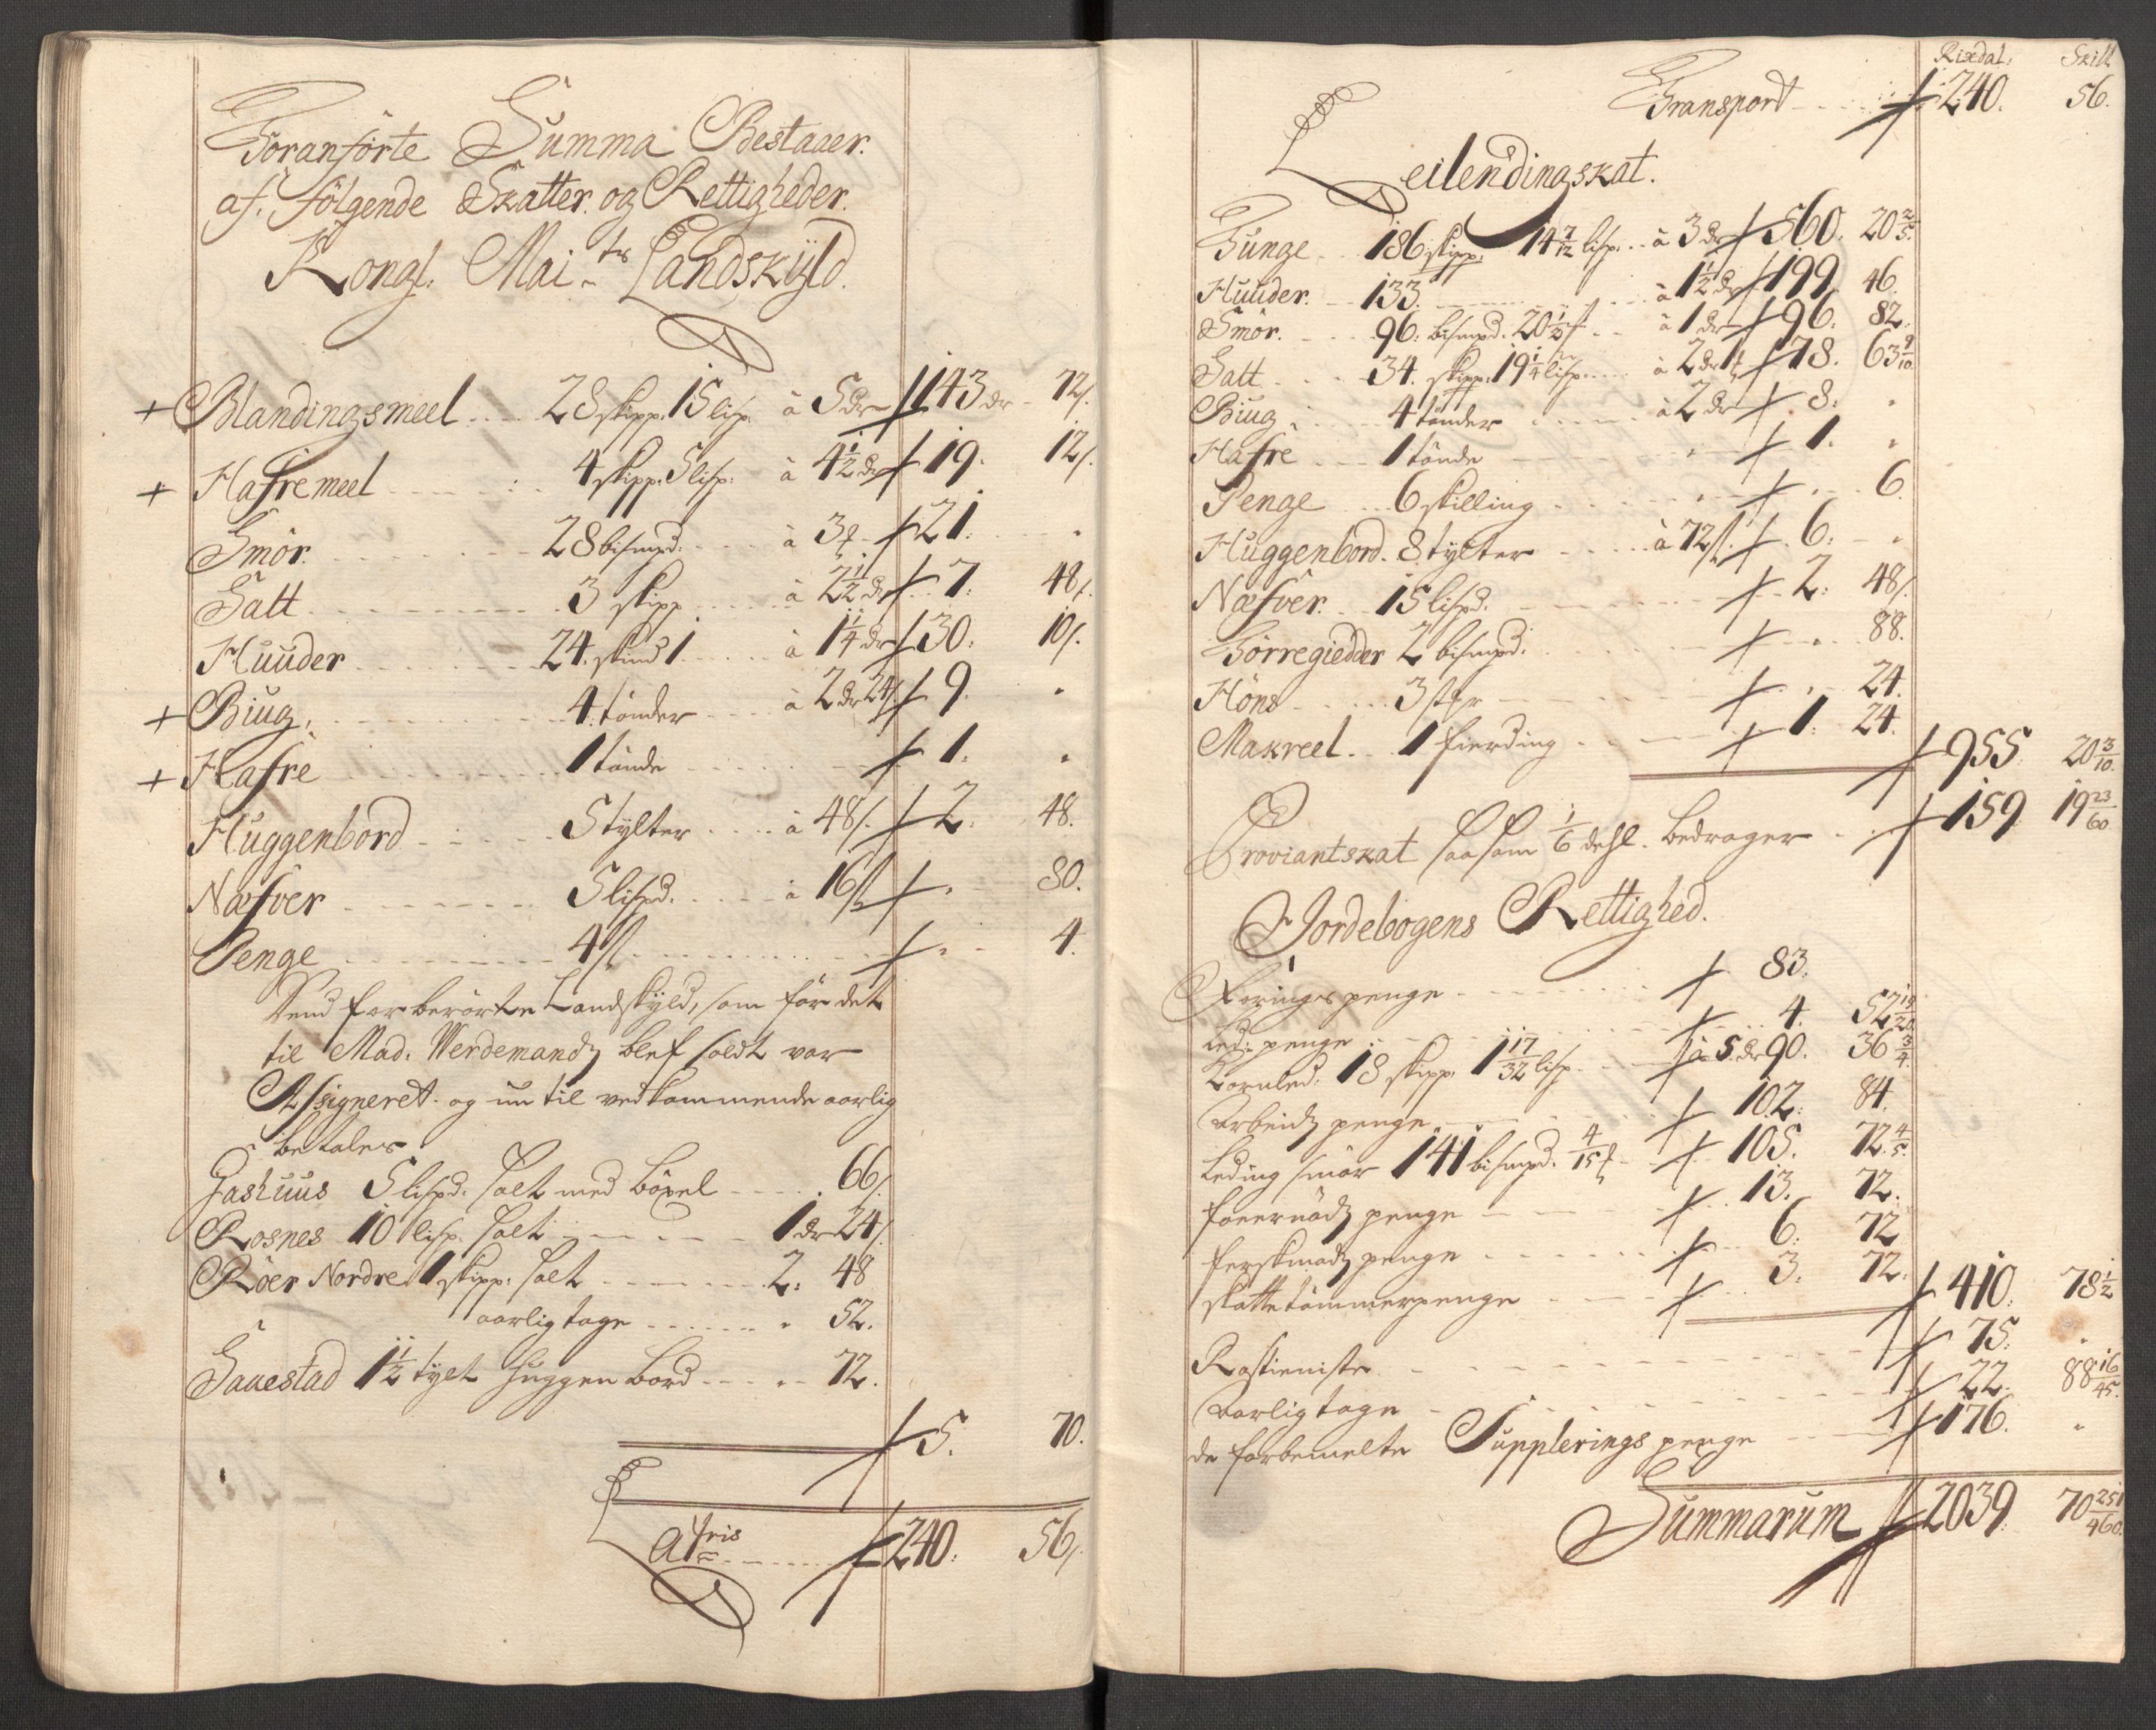 Foranførte Summa Bestaaer.
af følgende Skatter og Rettigheder.
Kongl: Mai-ts Landskÿld.
+ Blandingsmeel 28 skipp: 15 lisp. à 5 dr 143 dr 72 s.
+ Hafremeel 4 skipp: 5 lisp: à 4 1/2 dr 19. 12 s.
Smør. 28 bismpd: à 3 21.
Salt 3 skipp à 2 1/2 dr 7. 48 s.
Huuder 24. skind 1 à 1 1/4 dr 30. 10 s.
+ Biug. 4. tønder à 2 dr 24 s 9.
+ Hafre 1 tønde 1.
Huggenbord 5 tylter à 48 s. 2. 48.
Næfver 5 lispd. à 16 s 80.
Penge 4 s 4.
Vend forberørte Landskyld, som før det
til Mad. Werdemandz blef soldt var
Assigneret og nu til vedkommende aarlig
betales
Gashuus 5 lispd. salt med bøxel 66 s.
Rosnes 10 lisp. salt 1 dr 24 s.
Röer Nordre 1 skipp: salt 2. 48
aarlig tage 52.
Saxestad 1 1/2 tylt huggen bord 72.
5. 70.
Latris 240. 56 s.
Rixdal: Skill
Transport 240. 56.
Leilendingskat.
Tunge 186 skipp: 14 7/12 lisp: à 3 dr 560. 20 2/5.
Huuder. 133. à 1 1/2 dr 199. 46.
Smør. 96. bismpd. 20 1/2 à 1 dr 96. 82.
Salt 34. skipp: 19 1/4 lisp. à 2 dr 78. 63 9/10
Biug 4 tønder à 2 dr 8.
Hafre 1 tønde 1.
Penge 6 skilling 6.
Huggenbord. 8 tylter à 72 s 6.
Næfver. 15 lispd. 2. 48 s.
Törregiedder 2 bismpd. 88.
Höns 3 stkr 24.
Makreel 1 fierding 1. 24.
955. 20 3/10.
Proviantskat saasom 1/6 dehl. bedrager 159 19 23/60
Jordebogens Rettighed.
Foringspenge 83.
Led: penge 4. 52 19/20
Kornled: 18 skipp: 1 17/32 lisp. à 5 dr 90. 36 3/4.
Arbeidz penge 102. 84.
Leding smør 141 bismpd. 4/15 105. 72 4/5.
foeernødz penge 13. 72.
ferskmadz penge 6. 72
skattetømmerpenge 3. 72.
410. 78 1/2
Rostieniste 75.
Aarlig tage 22. 88 16/45.
de forbemelte Supplerings penge 176.
Summarum 2039. 70 251/460.